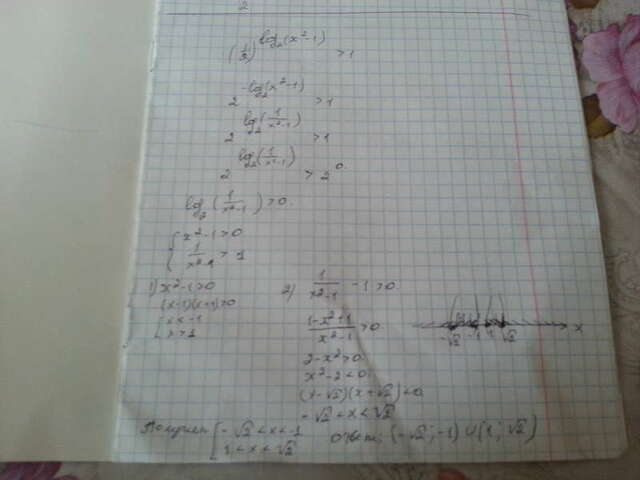 2
(1/2)^(log₂(x²-1)) > 1
2^(-log₂(x²-1)) > 1
2^(log₂(1/(x²-1))) > 1
2^(log₂(1/(x²-1))) > 2⁰
log₂(1/(x²-1)) > 0.
{ x²-1>0
1/(x²-1) > 1
1) x²-1>0
(x-1)(x+1)>0
[ x<-1
x>1
2) 1/(x²-1) -1>0
(1-x²+1)/(x²-1) >0
2-x²>0
x²-2<0
(x-√2)(x+√2)<0
-√2<x<√2
-√2 -1 1 √2 x
Получаем [ -√2<x<-1
1<x<√2
Ответ: (-√2; -1) ∪ (1; √2)